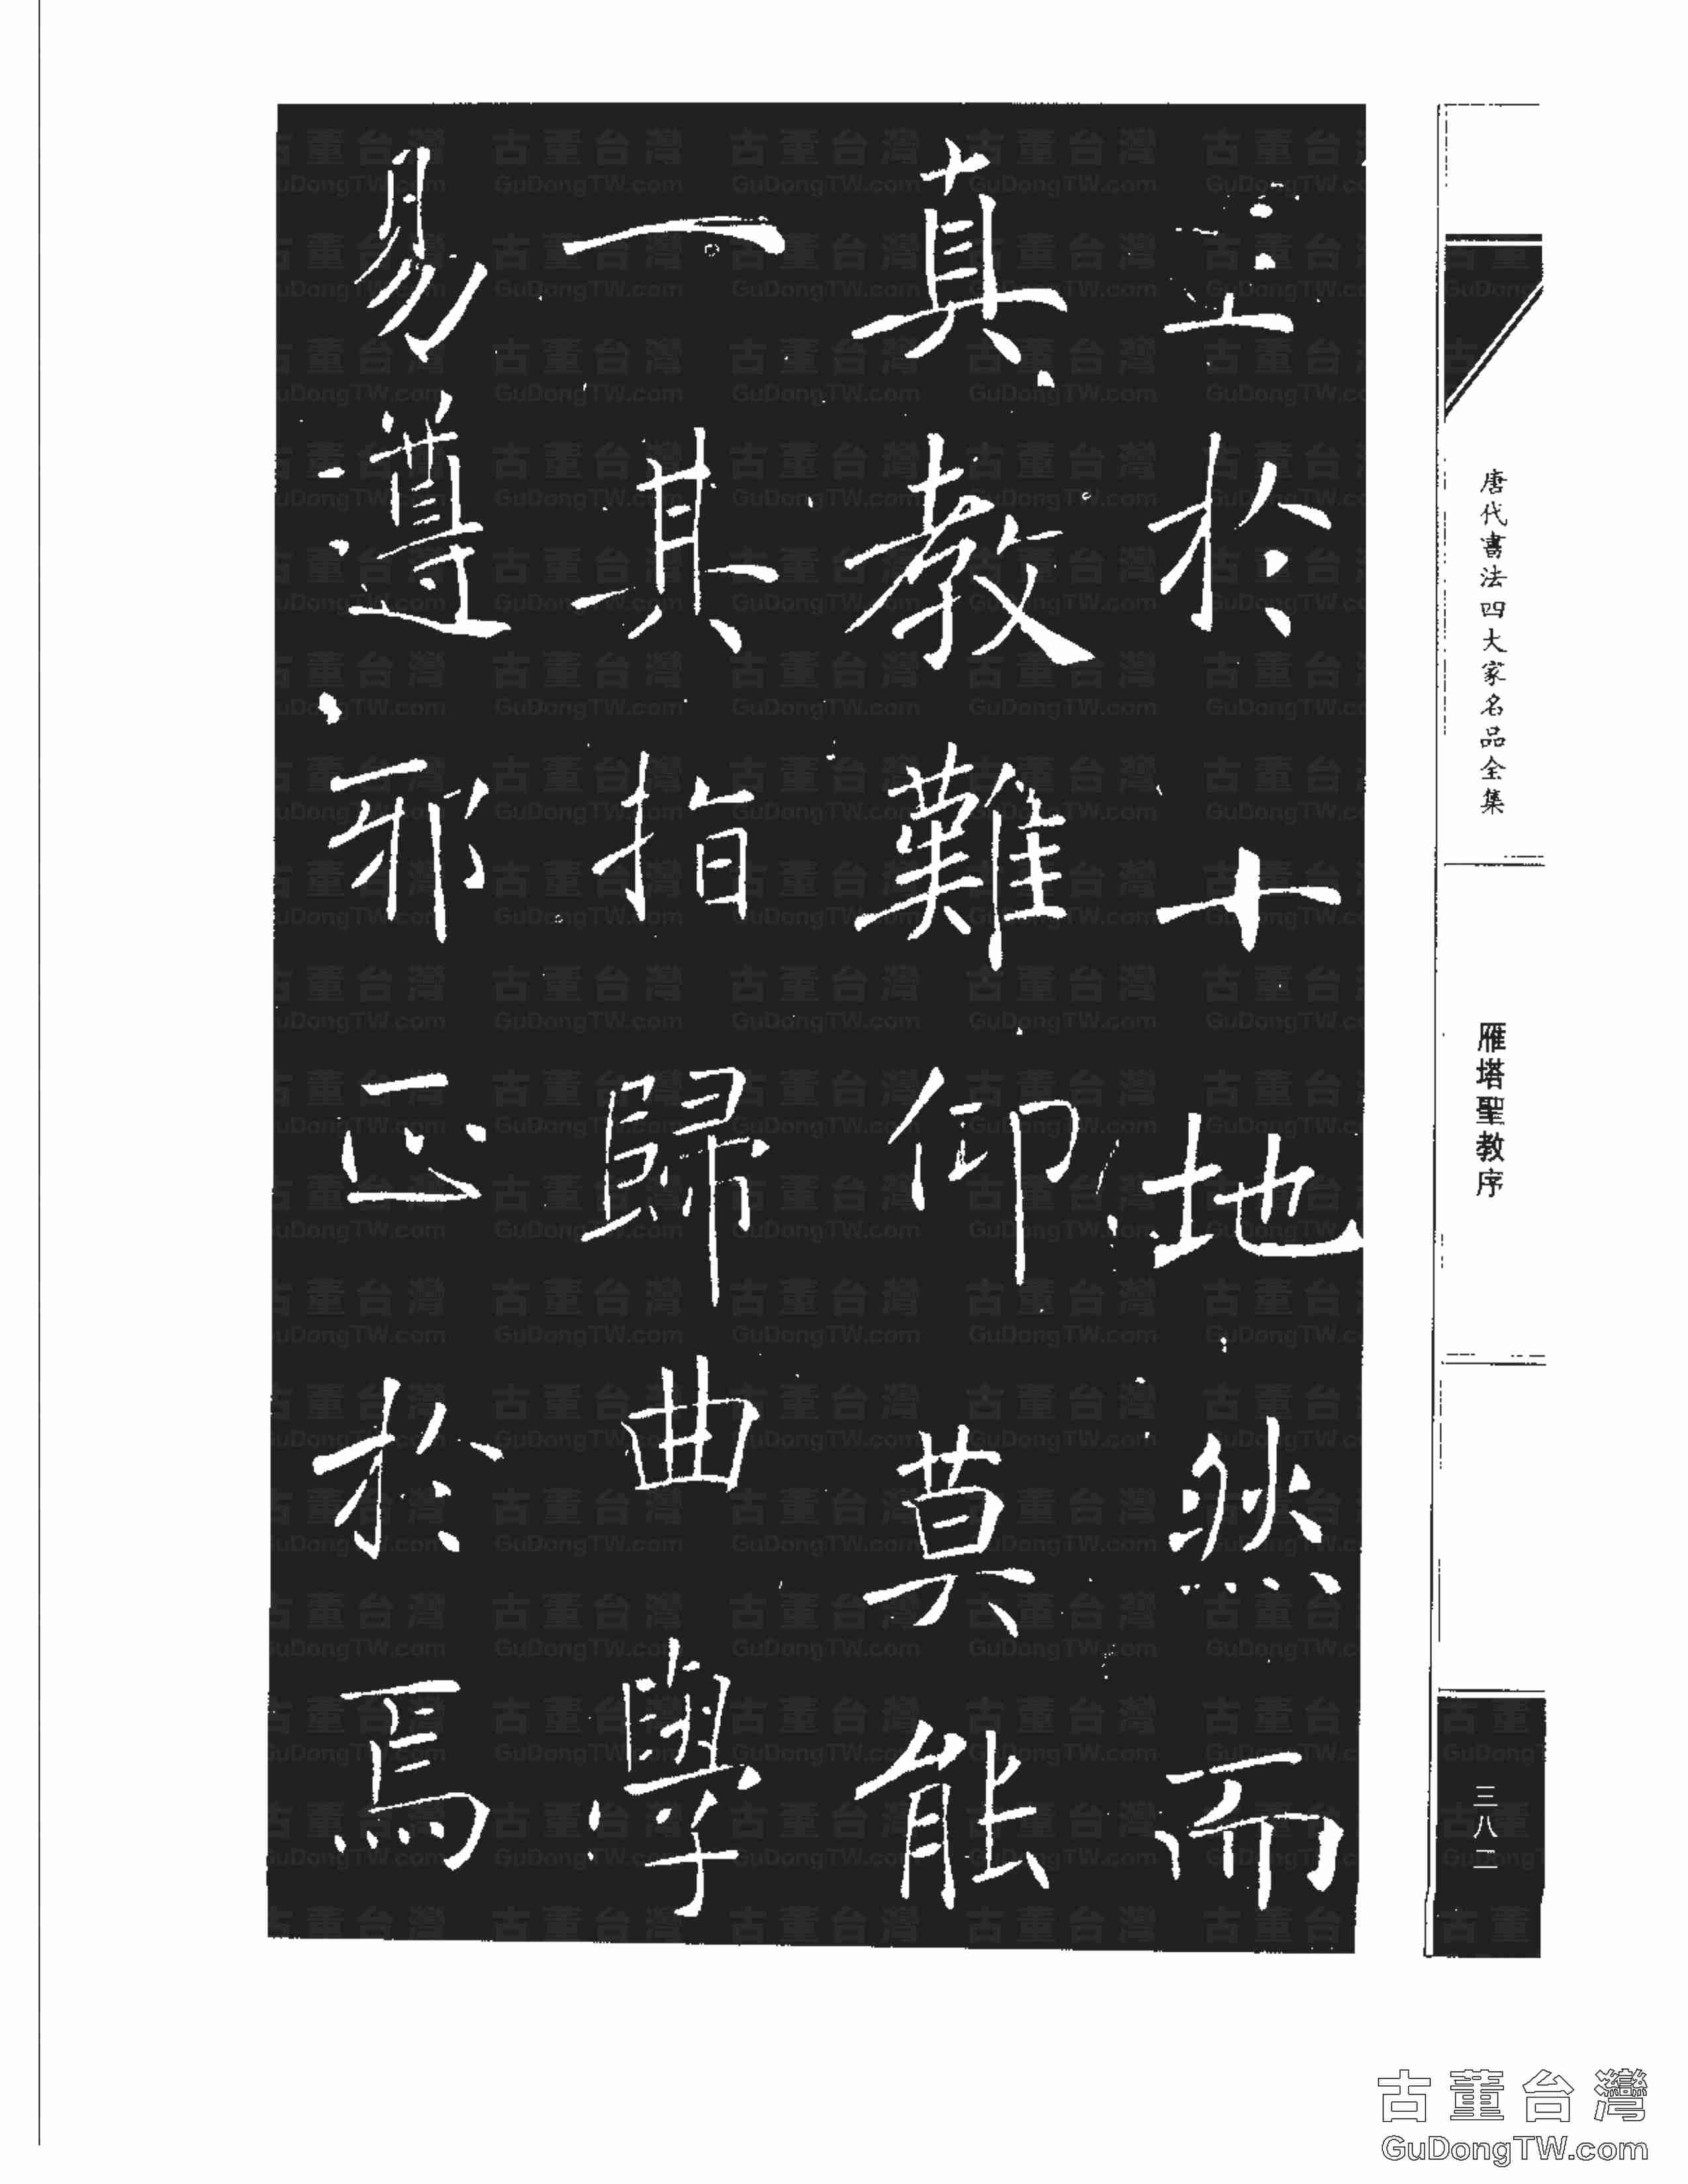 唐代書法四大家名品全集
雁塔聖教序
三八二
於十地然而
真教難仰莫能
一其指歸曲學
易遵邪正於焉
古董台灣
GuDongTW.com